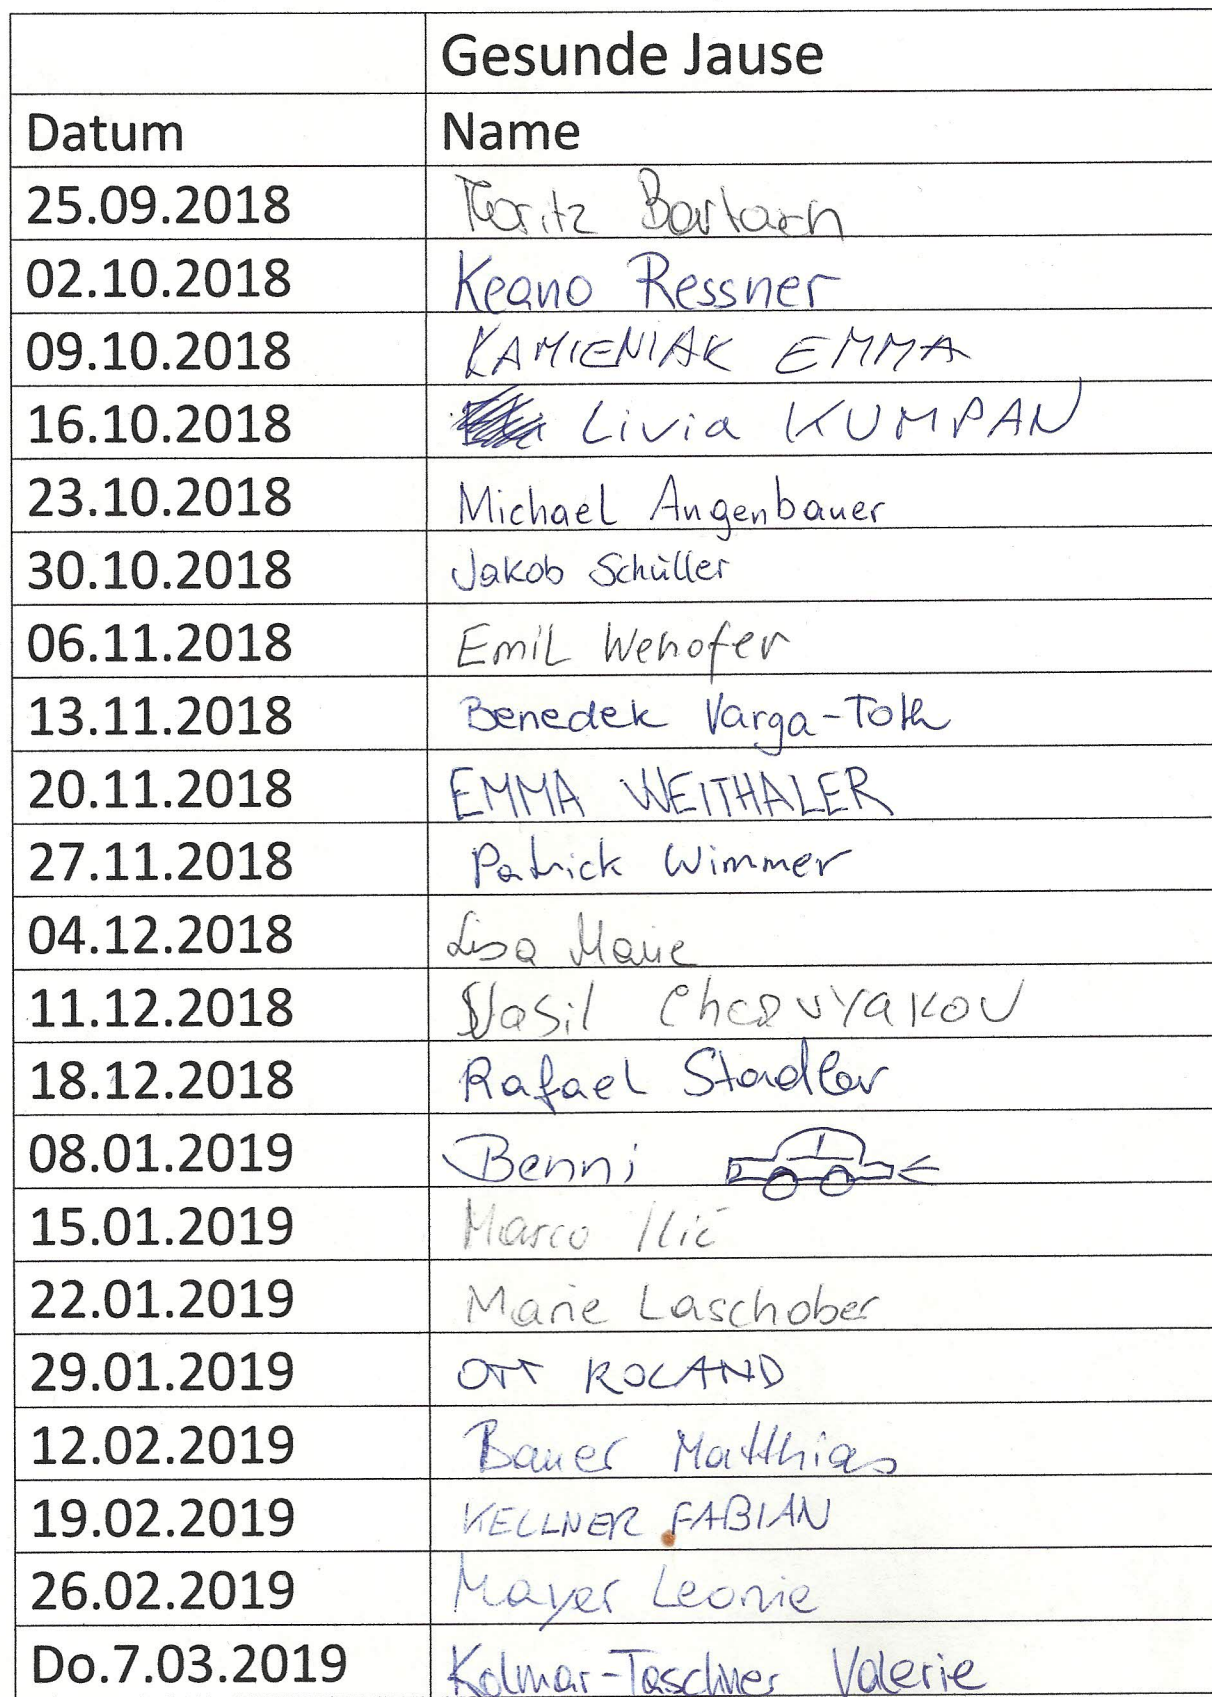 Gesunde Jause
Datum Name
25.09.2018 Moritz
02.10.2018 Keano Ressner
09.10.2018 KAMIENIAK EMMA
16.10.2018 Livia KUMPAN
23.10.2018 Michael Angenbauer
30.10.2018 Jakob Schüller
06.11.2018 Emil Wehofer
13.11.2018 Benedek Varga-Toth
20.11.2018 EMMA WEITHALER
27.11.2018 Patrick Wimmer
04.12.2018 Lisa Marie
11.12.2018 Vasil Chervyakov
18.12.2018 Rafael Stadler
08.01.2019 Benni
15.01.2019 Marco Ilić
22.01.2019 Marie Laschober
29.01.2019 OTT ROLAND
12.02.2019 Bauer Matthias
19.02.2019 KELLNER FABIAN
26.02.2019 Mayer Leonie
Do.7.03.2019 Kolmar-Taschner Valerie